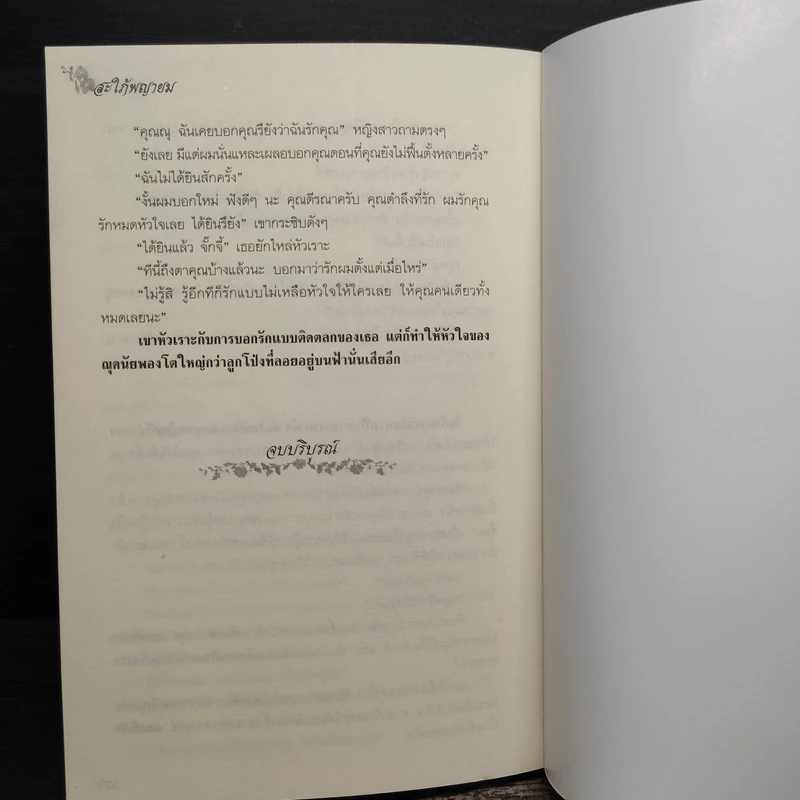 สะใภ้พญายม
“คุณณุ ฉันเคยบอกคุณรึยังว่าฉันรักคุณ” หญิงสาวถามตรงๆ
“ยังเลย มีแต่ผมนั่นแหละเผลอบอกคุณตอนที่คุณยังไม่ฟื้นตั้งหลายครั้ง”
“ฉันไม่ได้ยินสักครั้ง”
“งั้นผมบอกใหม่ ฟังดีๆ นะ คุณตีรณาครับ คุณตำลึงที่รัก ผมรักคุณ
รักหมดหัวใจเลย ได้ยินรึยัง” เขากระซิบดังๆ
“ได้ยินแล้ว จั๊กจี้” เธอยักไหล่หัวเราะ
“ทีนี้ถึงตาคุณบ้างแล้วนะ บอกมาว่ารักผมตั้งแต่เมื่อไหร่”
“ไม่รู้สิ รู้อีกทีก็รักแบบไม่เหลือหัวใจให้ใครเลย ให้คุณคนเดียวทั้ง
หมดเลยนะ”
เขาหัวเราะกับการบอกรักแบบติดตลกของเธอ แต่ก็ทำให้หัวใจของ
ณุดนัยพองโตใหญ่กว่าลูกโป่งที่ลอยอยู่บนฟ้านั่นเสียอีก
จบบริบูรณ์